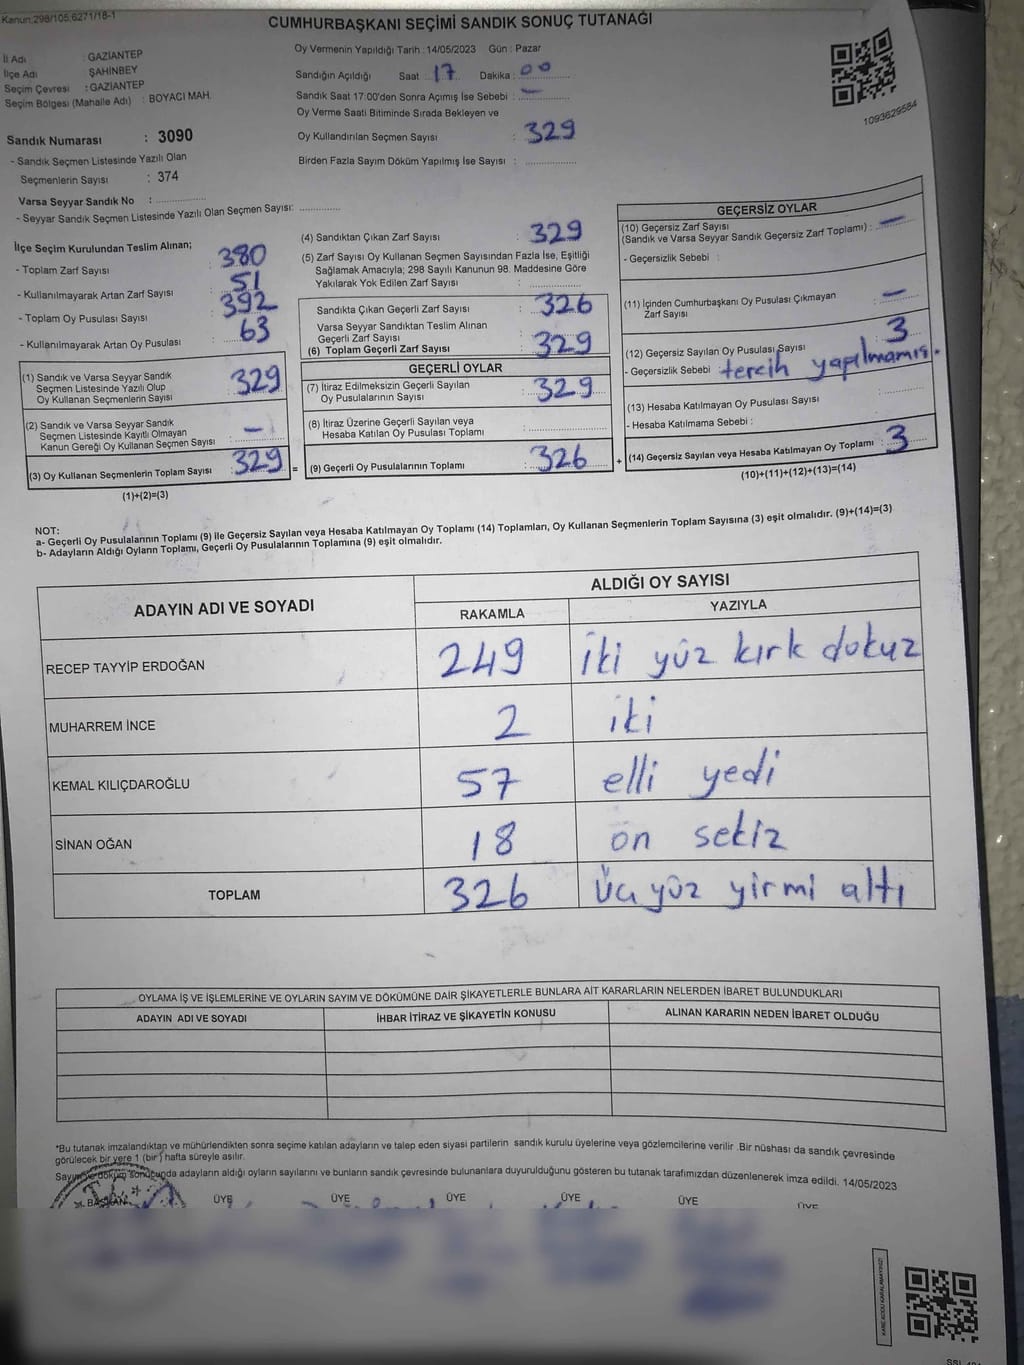 Kanun:298/105;6271/18-1
CUMHURBAŞKANI SEÇİMİ SANDIK SONUÇ TUTANAĞI
İl Adı : GAZİANTEP
İlçe Adı : ŞAHİNBEY
Seçim Çevresi : GAZİANTEP
Seçim Bölgesi (Mahalle Adı) : BOYACI MAH.
Sandık Numarası : 3090
- Sandık Seçmen Listesinde Yazılı Olan
Seçmenlerin Sayısı : 374
Varsa Seyyar Sandık No :
- Seyyar Sandık Seçmen Listesinde Yazılı Olan Seçmen Sayısı:
Oy Vermenin Yapıldığı Tarih : 14/05/2023 Gün : Pazar
Sandığın Açıldığı Saat : 17 Dakika : 00
Sandık Saat 17:00'den Sonra Açımış İse Sebebi : —
Oy Verme Saati Bitiminde Sırada Bekleyen ve
Oy Kullandırılan Seçmen Sayısı : 329
Birden Fazla Sayım Döküm Yapılmış İse Sayısı :
1093629584
İlçe Seçim Kurulundan Teslim Alınan;
- Toplam Zarf Sayısı : 380
- Kullanılmayarak Artan Zarf Sayısı : 51
- Toplam Oy Pusulası Sayısı : 392
- Kullanılmayarak Artan Oy Pusulası : 63
(1) Sandık ve Varsa Seyyar Sandık
Seçmen Listesinde Yazılı Olup
Oy Kullanan Seçmenlerin Sayısı : 329
(2) Sandık ve Varsa Seyyar Sandık
Seçmen Listesinde Kayıtlı Olmayan
Kanun Gereği Oy Kullanan Seçmen Sayısı : —
(3) Oy Kullanan Seçmenlerin Toplam Sayısı : 329 =
(1)+(2)=(3)
(4) Sandıktan Çıkan Zarf Sayısı : 329
(5) Zarf Sayısı Oy Kullanan Seçmen Sayısından Fazla İse, Eşitliği
Sağlamak Amacıyla; 298 Sayılı Kanunun 98. Maddesine Göre
Yakılarak Yok Edilen Zarf Sayısı :
Sandıkta Çıkan Geçerli Zarf Sayısı : 326
Varsa Seyyar Sandıktan Teslim Alınan
Geçerli Zarf Sayısı :
(6) Toplam Geçerli Zarf Sayısı : 329
GEÇERLİ OYLAR
(7) İtiraz Edilmeksizin Geçerli Sayılan
Oy Pusulalarının Sayısı : 329
(8) İtiraz Üzerine Geçerli Sayılan veya
Hesaba Katılan Oy Pusulası Toplamı :
(9) Geçerli Oy Pusulalarının Toplamı : 326 +
GEÇERSİZ OYLAR
(10) Geçersiz Zarf Sayısı
(Sandık ve Varsa Seyyar Sandık Geçersiz Zarf Toplamı) : —
- Geçersizlik Sebebi :
(11) İçinden Cumhurbaşkanı Oy Pusulası Çıkmayan
Zarf Sayısı : —
(12) Geçersiz Sayılan Oy Pusulası Sayısı : 3
- Geçersizlik Sebebi : tercih yapılmamış.
(13) Hesaba Katılmayan Oy Pusulası Sayısı :
- Hesaba Katılmama Sebebi :
(14) Geçersiz Sayılan veya Hesaba Katılmayan Oy Toplamı : 3
(10)+(11)+(12)+(13)=(14)
NOT:
a- Geçerli Oy Pusulalarının Toplamı (9) İle Geçersiz Sayılan veya Hesaba Katılmayan Oy Toplamı (14) Toplamları, Oy Kullanan Seçmenlerin Toplam Sayısına (3) eşit olmalıdır. (9)+(14)=(3)
b- Adayların Aldığı Oyların Toplamı, Geçerli Oy Pusulalarının Toplamına (9) eşit olmalıdır.
ADAYIN ADI VE SOYADI ALDIĞI OY SAYISI
RAKAMLA YAZIYLA
RECEP TAYYİP ERDOĞAN 249 iki yüz kırk dokuz
MUHARREM İNCE 2 iki
KEMAL KILIÇDAROĞLU 57 elli yedi
SİNAN OĞAN 18 on sekiz
TOPLAM 326 üç yüz yirmi altı
OYLAMA İŞ VE İŞLEMLERİNE VE OYLARIN SAYIM VE DÖKÜMÜNE DAİR ŞİKAYETLERLE BUNLARA AİT KARARLARIN NELERDEN İBARET BULUNDUKLARI
ADAYIN ADI VE SOYADI İHBAR İTİRAZ VE ŞİKAYETİN KONUSU ALINAN KARARIN NEDEN İBARET OLDUĞU
*Bu tutanak imzalandıktan ve mühürlendikten sonra seçime katılan adayların ve talep eden siyasi partilerin sandık kurulu üyelerine veya gözlemcilerine verilir .Bir nüshası da sandık çevresinde
görülecek bir yere 1 (bir) hafta süreyle asılır.
Sayım ve döküm sonucunda adayların aldığı oyların sayılarını ve bunların sandık çevresinde bulunanlara duyurulduğunu gösteren bu tutanak tarafımızdan düzenlenerek imza edildi. 14/05/2023
BAŞKAN ÜYE ÜYE ÜYE ÜYE ÜYE ÜYE